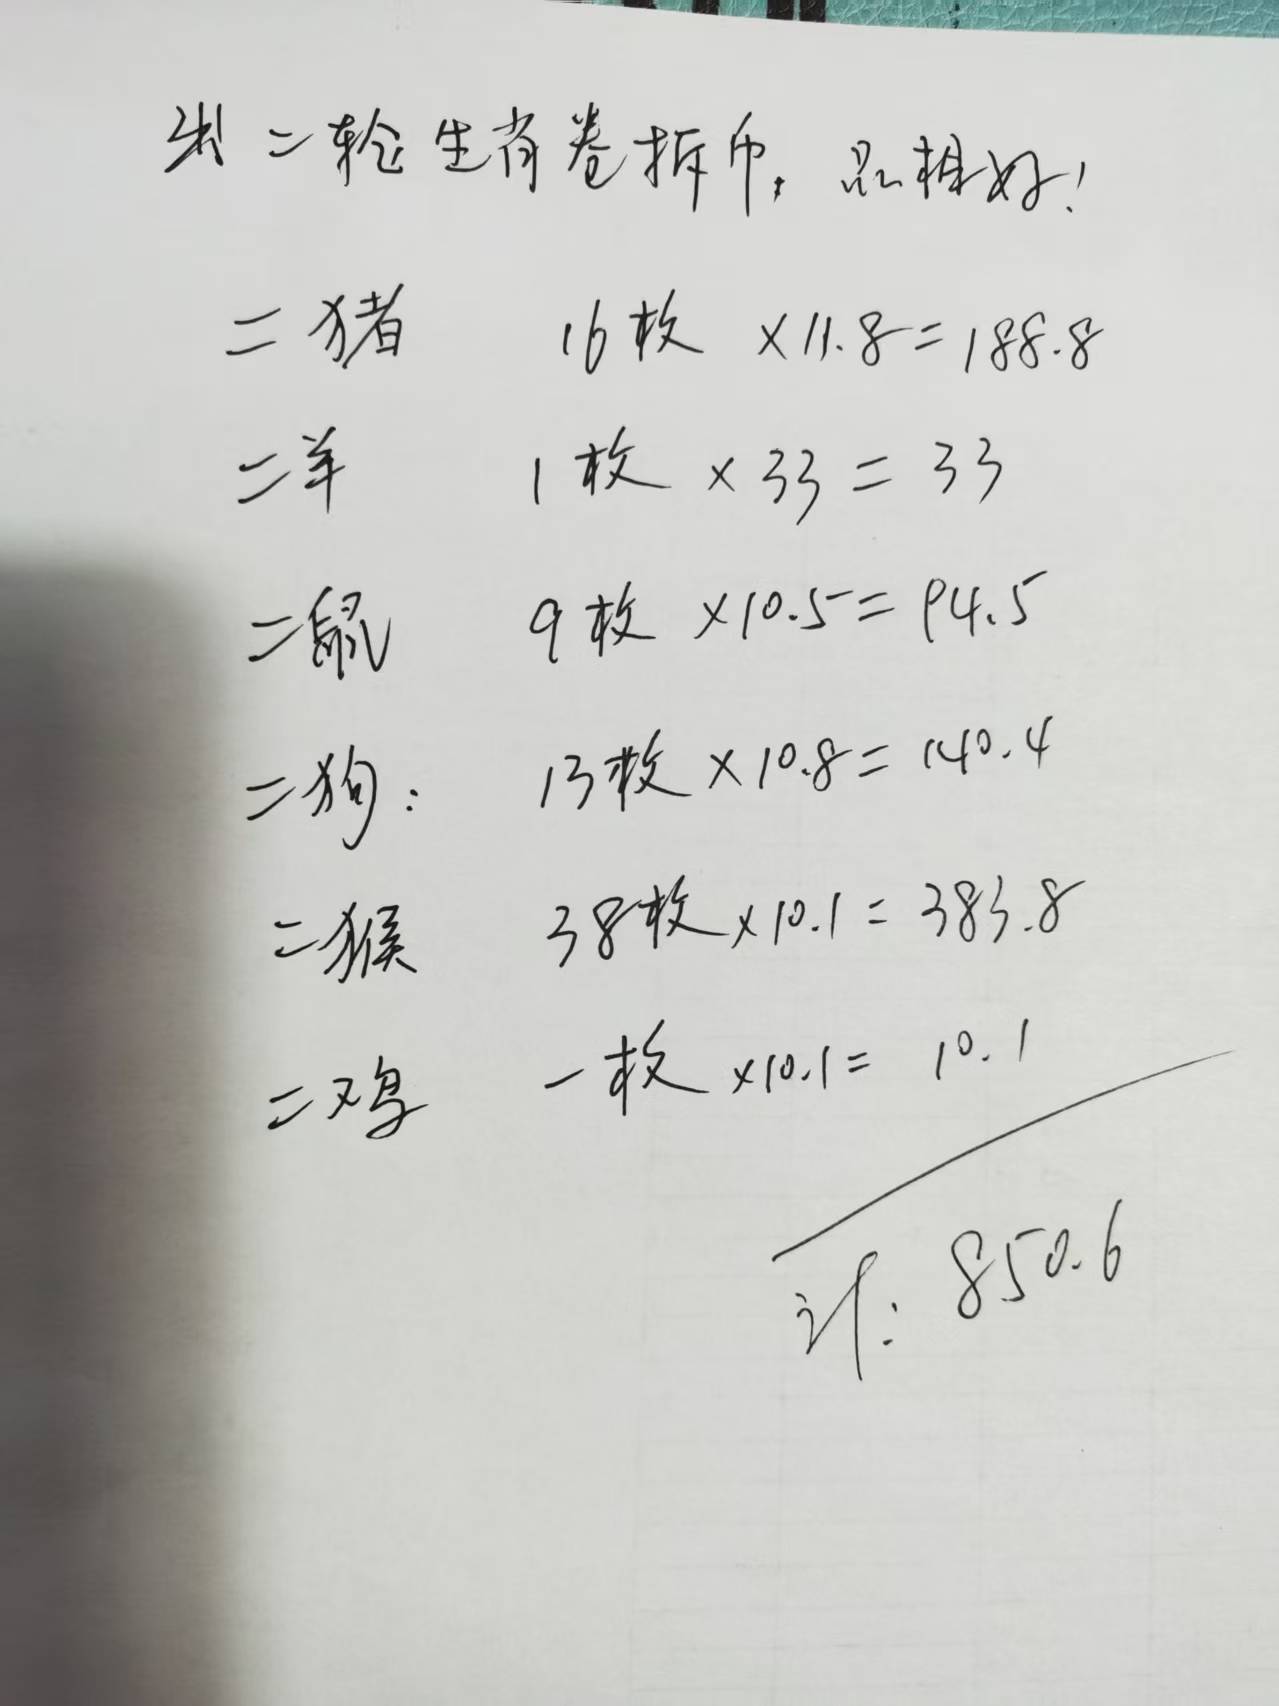 出二轮生肖卷拆币，品相好！
二猪 16枚 ×11.8=188.8
二羊 1枚 ×33=33
二鼠 9枚 ×10.5=94.5
二狗： 13枚 ×10.8=140.4
二猴 38枚×10.1=383.8
二鸡 一枚 ×10.1=10.1
计：850.6